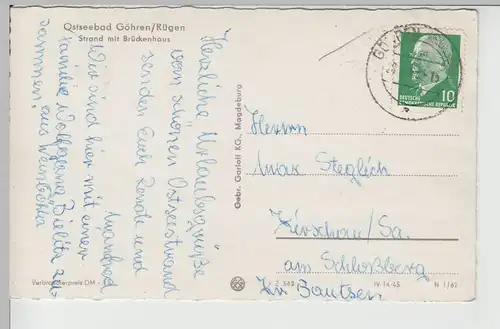 Ostseebad Göhren/Rügen
Strand mit Brückenhaus
Herzliche Urlaubsgrüße
vom schönen Ostseestrand
senden Euch Renate und
Manfred
Wir sind hier mit einer
Familie Wolfgang Bielitz zu-
sammen, aus
Verbraucherpreis DM
Gebr. Garloff KG., Magdeburg
DEUTSCHE
DEMOKRATISCHE REPUBLIK
10
Herrn
Max Steglich
Kirschau/Sa.
am Schloßberg
Kr. Bautzen
IV-14-45
N 1/62